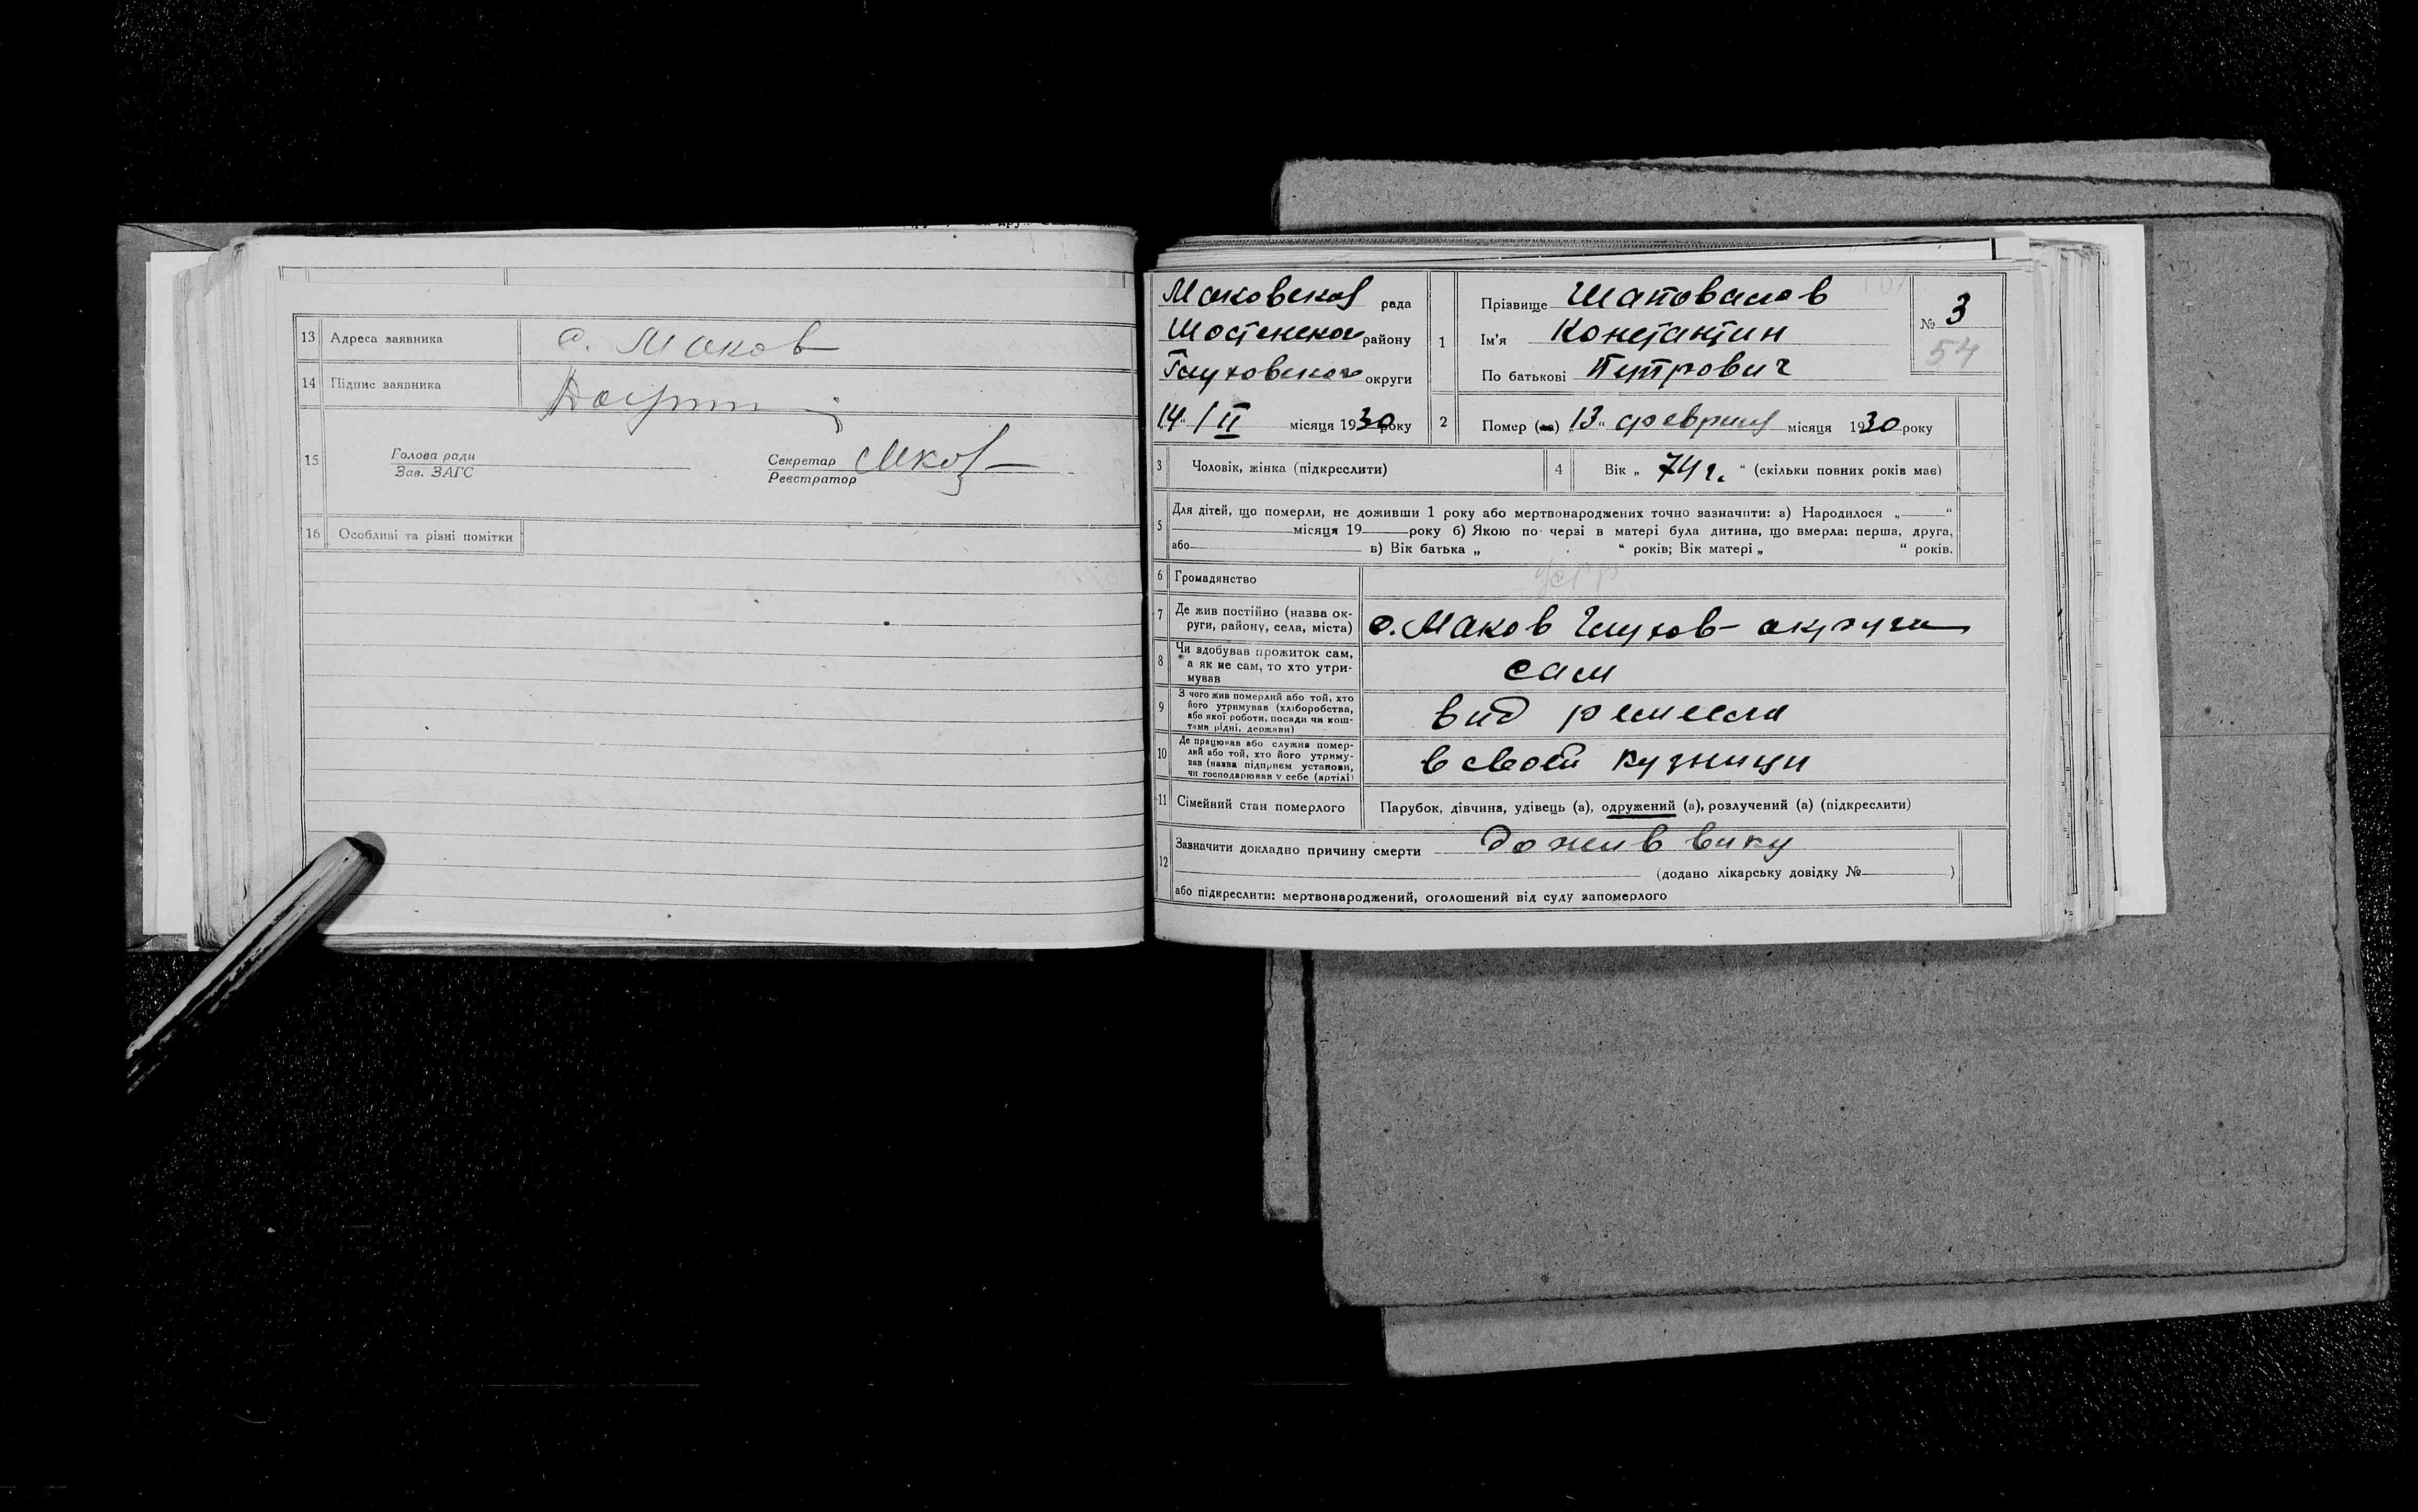 13 Адреса заявника с. Маков
14 Підпис заявника
15 Голова ради
Зав. ЗАГС
Секретар
Реєстратор
16 Особливі та різні помітки
Маковская рада
Шостенског району
Глуховског округи
14 / II місяця 1930 року
1 Прізвище Шаповалов
Ім'я Константин
По батькові Петрович
№ 3
54
2 Помер (ла) „13“ февраля місяця 1930 року
3 Чоловік, жінка (підкреслити)
4 Вік „ 74 г. “ (скільки повних років має)
5 Для дітей, що померли, не доживши 1 року або мертвонароджених точно зазначити: а) Народилося „ “
місяця 19 року б) Якою по черзі в матері була дитина, що вмерла: перша, друга,
або в) Вік батька „ “ років; Вік матері „ “ років.
6 Громадянство
7 Де жив постійно (назва ок-
руги, району, села, міста) с. Маков Глухов- округи
8 Чи здобував прожиток сам,
а як не сам, то хто утри-
мував сам
9 З чого жив померлий або той, хто
його утримував (хліборобства,
або якої роботи, посади чи кош-
тами рідні, держави) вид ремесла
10 Де працював або служив помер-
лий або той, хто його утриму-
вав (назва підприєм установи,
чи господарював у себе (артілі) в своей кузници
11 Сімейний стан померлого Парубок, дівчина, удівець (а), одружений (а), розлучений (а) (підкреслити)
12 Зазначити докладно причину смерти дожив вику
(додано лікарську довідку № )
або підкреслити: мертвонароджений, оголошений від суду запомерлого